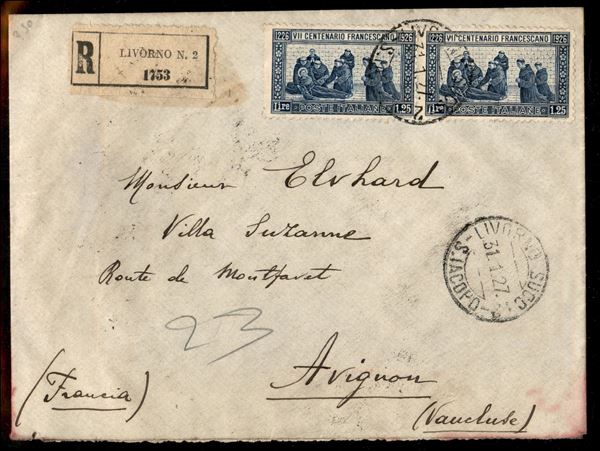 250
R
LIVORNO N. 2
1753
1226 VII CENTENARIO FRANCESCANO 1926
11ire POSTE ITALIANE 1.25
1226 VII CENTENARIO FRANCESCANO 1926
11ire POSTE ITALIANE 1.25
Monsieur Elvhard
Villa Suzanne
Route de Montfavet
LIVORNO SUCC.
31.1.27.
S.IACOPO
23
Avignon
(Francia)
(Vaucluse)